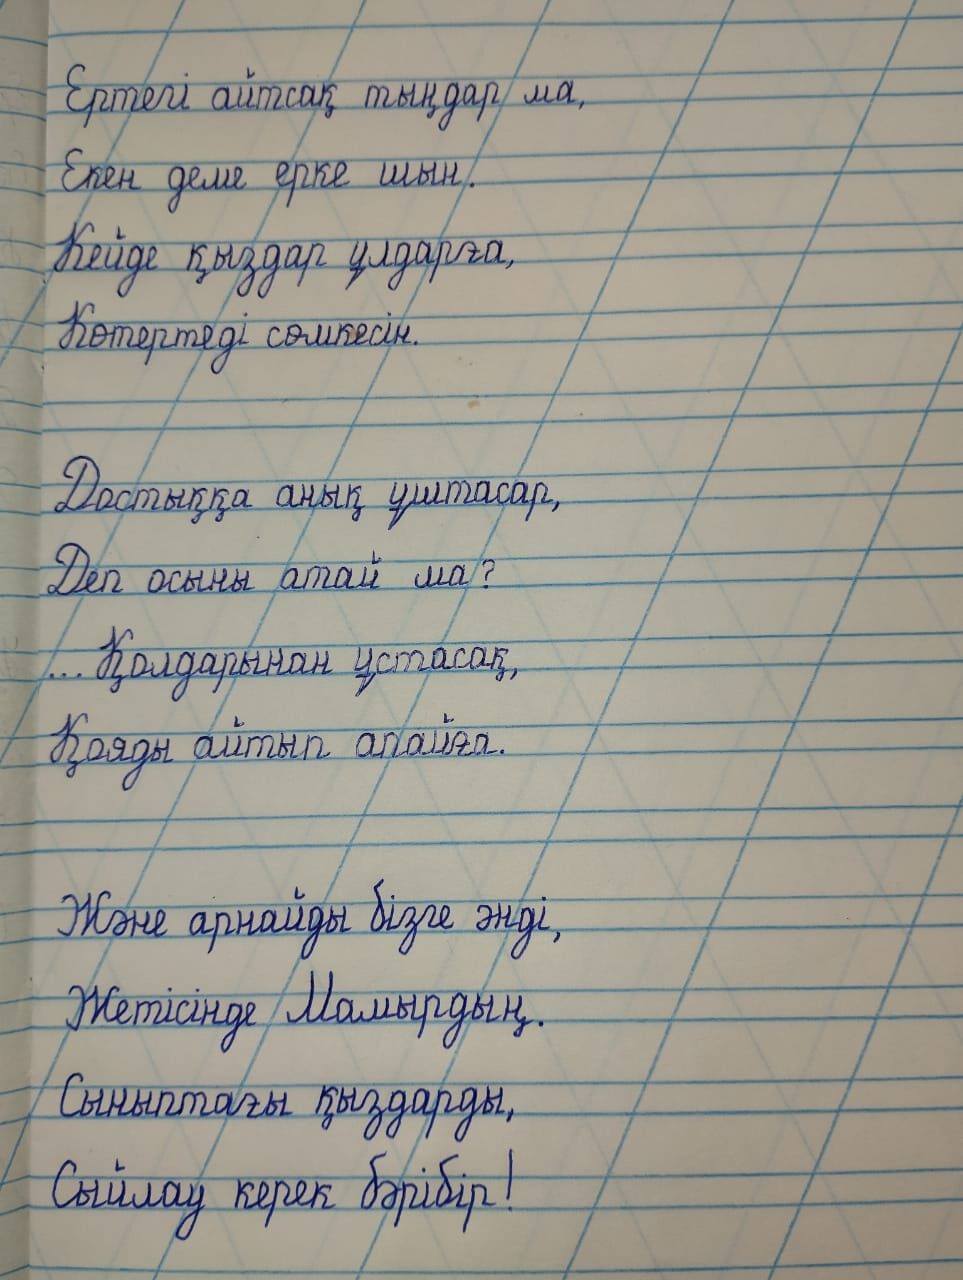 Ертегі айтсақ тыңдар ма,
Екен деме ерке шын.
Кейде қыздар ұлдарға,
Көтертеді сөмкесін.
Достыққа анық ұштасар,
Деп осыны атай ма?
... Қолдарынан ұстасақ,
Қояды айтып апайға.
Және арнайды бізге әнді,
Жетісінде Мамырдың.
Сыныптағы қыздарды,
Сыйлау керек бәрібір!